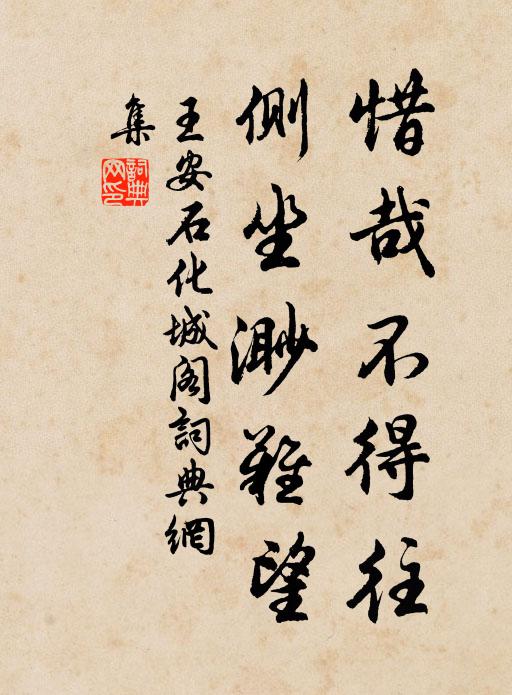 惜哉不得往
側坐渺難望
王安石化城阁詞典網
集
詞典
网印